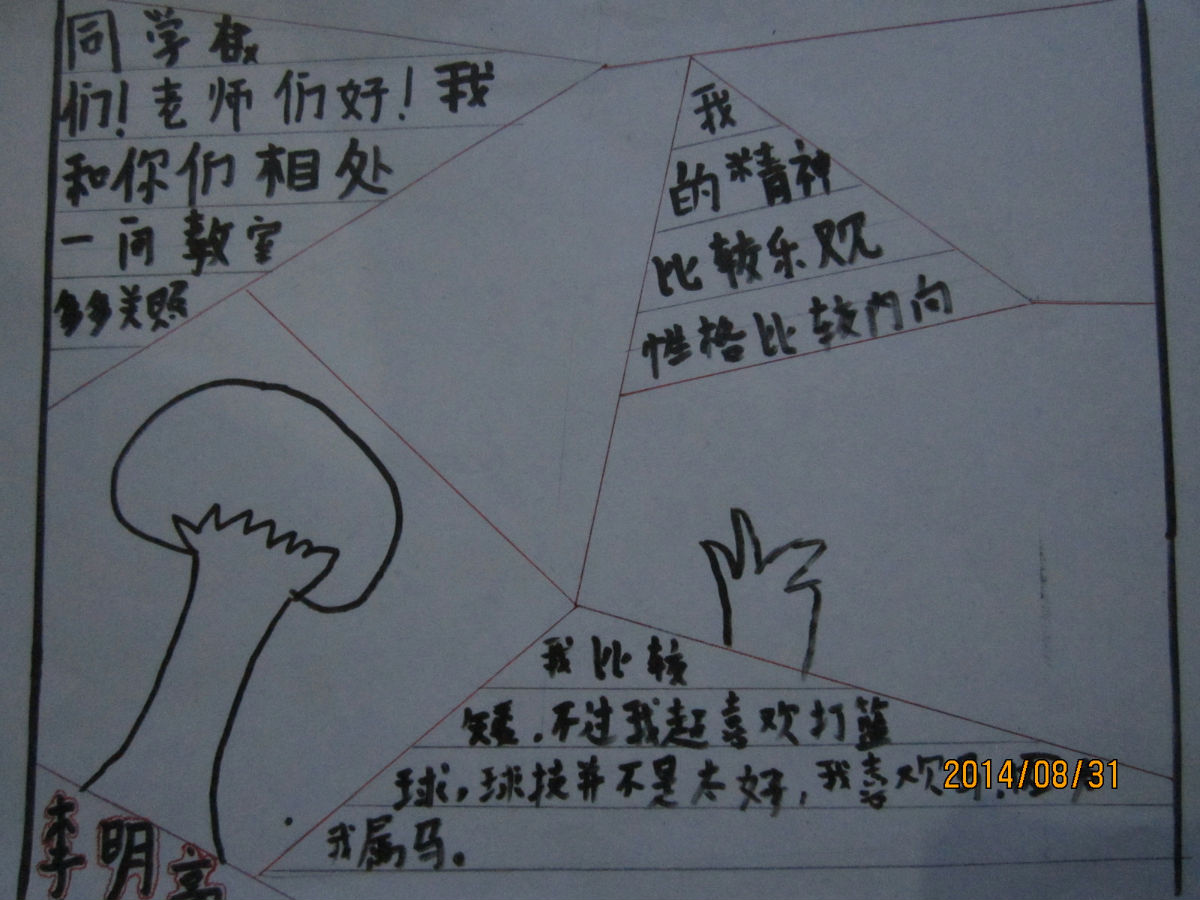 同学
们！老师们好！我
和你们相处
一间教室
多多关照
我
的精神
比较乐观
性格比较内向
我比较
矮，不过我起喜欢打篮
球，球技并不是太好，我喜欢
2014/08/31
我属马。
李明高